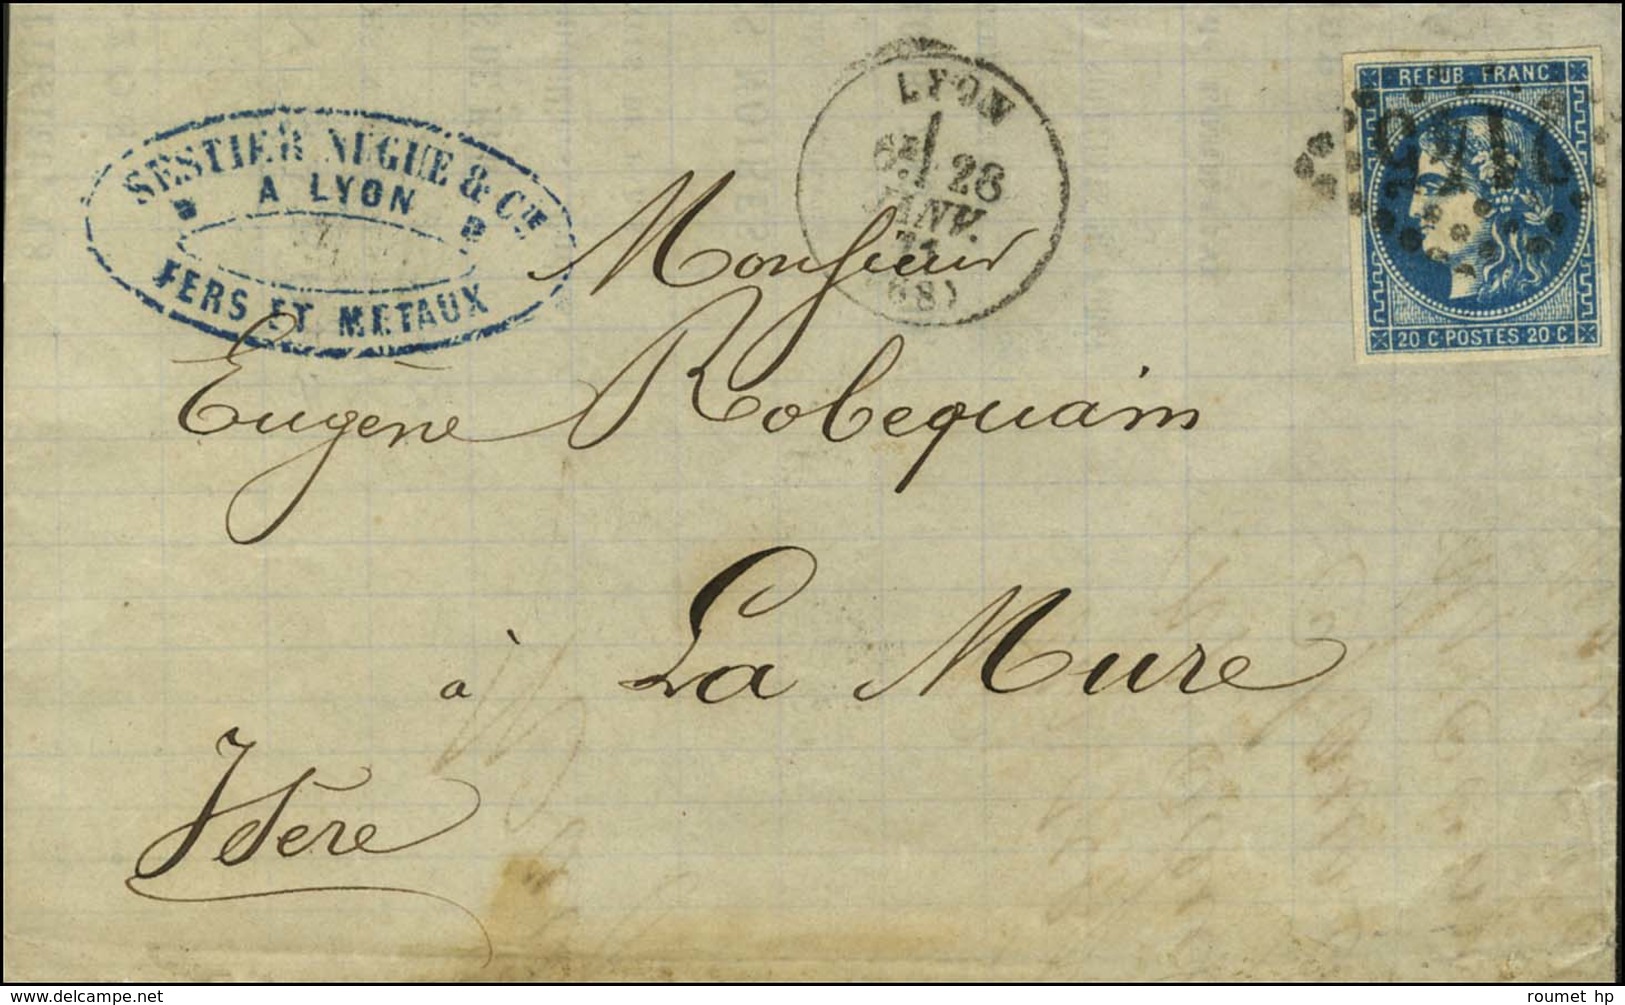 SESTIER NEGUE & CIE
A LYON
FERS ET METAUX
LYON
28
JANV.
71
(68)
REPUB. FRANC
20 C POSTES 20 C
Monsieur
Eugène Robequain
à La Mure
Isère
roumet hp